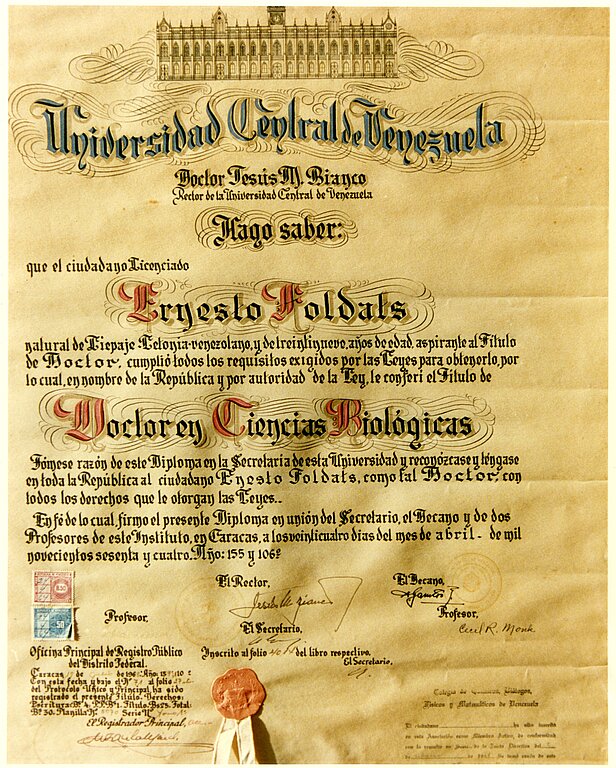 Universidad Central de Venezuela
Doctor Jesús M. Bianco
Rector de la Universidad Central de Venezuela
Hago saber:
que el ciudadano Licenciado
Ernesto Foldats
natural de Liepaje Letonia-venezolano, y de treintinueve, años de edad, aspirante al Título
de Doctor, cumplió todos los requisitos exigidos por las Leyes para obtenerlo, por
lo cual, en nombre de la República y por autoridad de la Ley, le conferí el Título de
Doctor en Ciencias Biológicas
Tómese razón de este Diploma en la Secretaría de esta Universidad y reconózcase y téngase
en toda la República al ciudadano Ernesto Foldats, como tal Doctor, con
todos los derechos que le otorgan las Leyes.
En fé de lo cual, firmo el presente Diploma en unión del Secretario, el Decano y de dos
Profesores de este Instituto, en Caracas, a los veinticuatro días del mes de abril - de mil
novecientos sesenta y cuatro. Año: 155 y 106º
El Rector,
El Decano,
Profesor,
Jesús M Bianco
Profesor,
El Secretario,
Cecil R. Monk
Oficina Principal de Registro Público
del Distrito Federal.
Inscrito al folio del libro respectivo.
El Secretario,
Caracas de de 196
Con esta fecha y bajo el Nº al folio
del Protocolo Unico y Principal ha sido
registrado el presente Título. Derechos:
Escritura Bs. 4. P.P. Bs 1. Título Bs 25. Total:
Bs 30. Planilla Nº Serie Nº
El Registrador Principal,
Colegio de Químicos, Biólogos,
Físicos y Matemáticos de Venezuela
El ciudadano ha sido inscrito
en esta Asociación como Miembro Activo, de conformidad